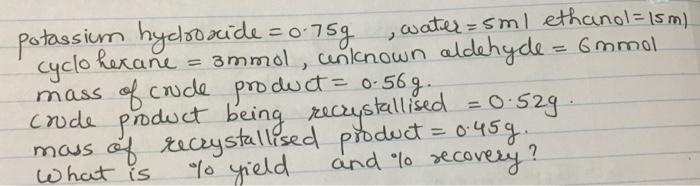 potassium hydrooxide = 0.75g , water = 5ml ethanol = 15ml
cyclo hexane = 3mmol, unknown aldehyde = 6mmol
mass of crude product = 0.56g.
Crude product being recrystallised = 0.52g.
mass of recrystallised product = 0.45g.
What is % yield and % recovery?